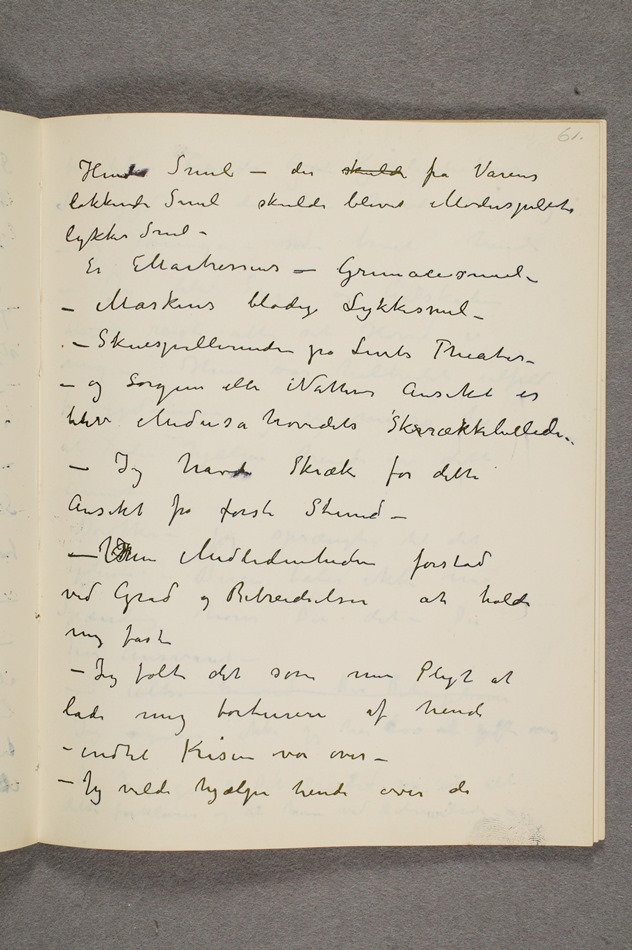 61.
Hendes Smil — der skulde fra Vårens
lokkende Smil skulde blevet Moderspirets
lykke Smil –
Er Martressens — Grimacesmil –
– Maskens blodige Lykkesmil –
– Skuespillerinden på Livets Theater –
– og Sorgens eller Nattens Ansikt er
blev Medusahovedets Skrækkbillede..
– Jeg havde Skræk for dette
Ansikt fra første Stund –
– Men Medlidenheden forstod
ved Gråd og Bebreidelser at holde
mig fast
– Jeg følte det som min Pligt at
lade mig torturere af hende
– indtil Krisen var over –
– Jeg vilde hjælpe hende over de